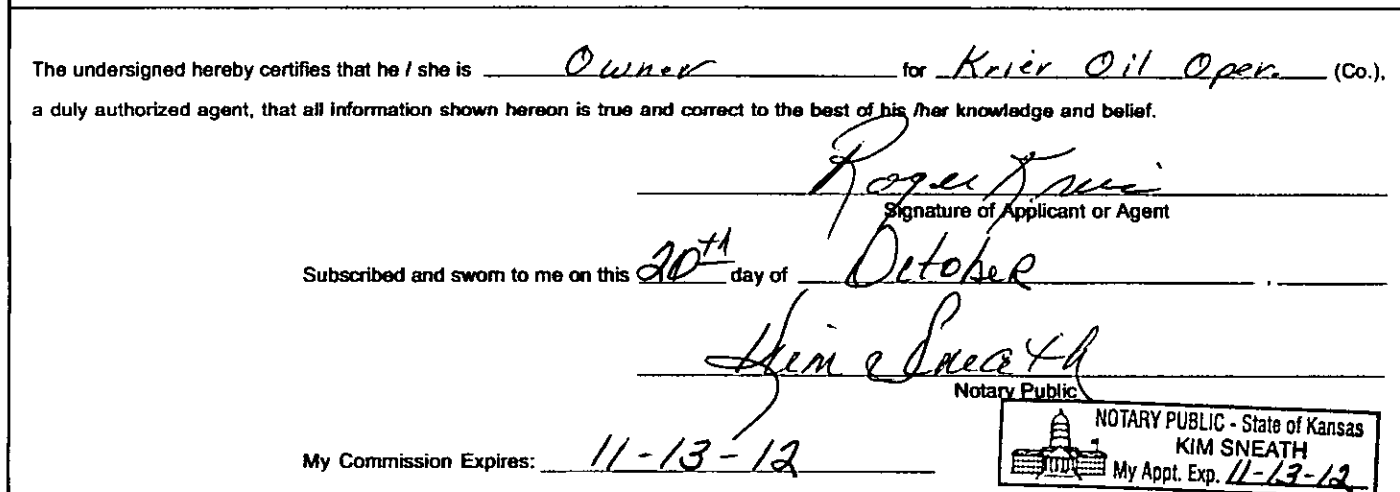 The undersigned hereby certifies that he / she is Owner for Krier Oil Oper. (Co.),
a duly authorized agent, that all information shown hereon is true and correct to the best of his /her knowledge and belief.
Roger Krier
Signature of Applicant or Agent
Subscribed and sworn to me on this 20th day of October , .
Kim Sneath
Notary Public
NOTARY PUBLIC - State of Kansas
KIM SNEATH
My Appt. Exp. 11-13-12
My Commission Expires: 11-13-12